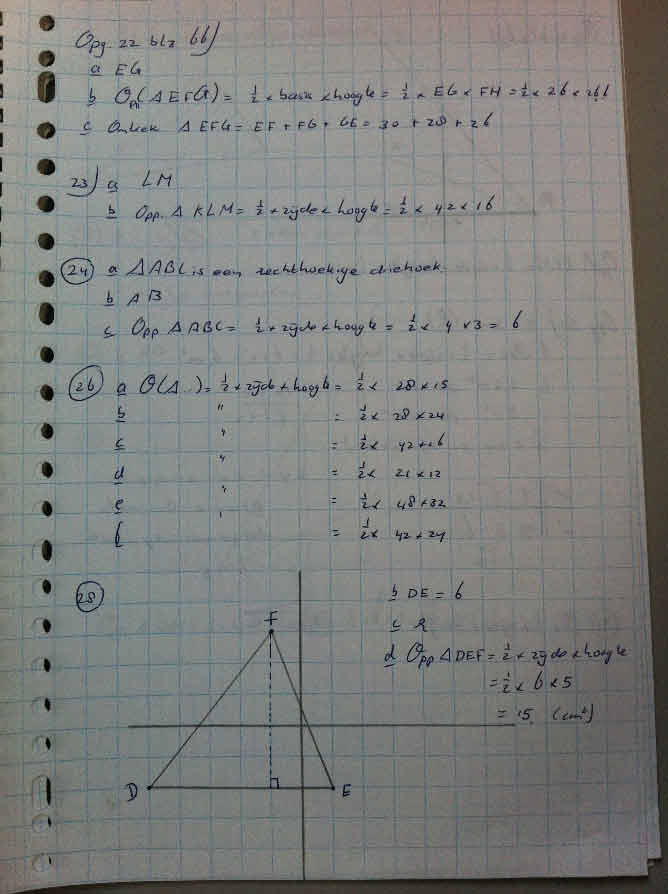 Opg. 22 blz 66)
a EG
b Opp(ΔEFG) = ½ × basis × hoogte = ½ × EG × FH = ½ × 26 ×
c Omtrek ΔEFG = EF + FG + GE = 30 + 28 + 26
23) a LM
b Opp. Δ KLM = ½ × zijde × hoogte = ½ × 42 × 16
24 a ΔABC is een rechthoekige driehoek.
b AB
c Opp ΔABC = ½ × zijde × hoogte = ½ × 4 × 3 = 6
26 a O(Δ..) = ½ × zijde × hoogte = ½ × 28 × 15
b " = ½ × 28 × 24
c " = ½ × 42 × 16
d " = ½ × 21 × 12
e " = ½ × 48 × 32
f " = ½ × 42 × 24
28
b DE = 6
c
d Opp ΔDEF = ½ × zijde × hoogte
= ½ × 6 × 5
= 15 (cm²)
F
D E